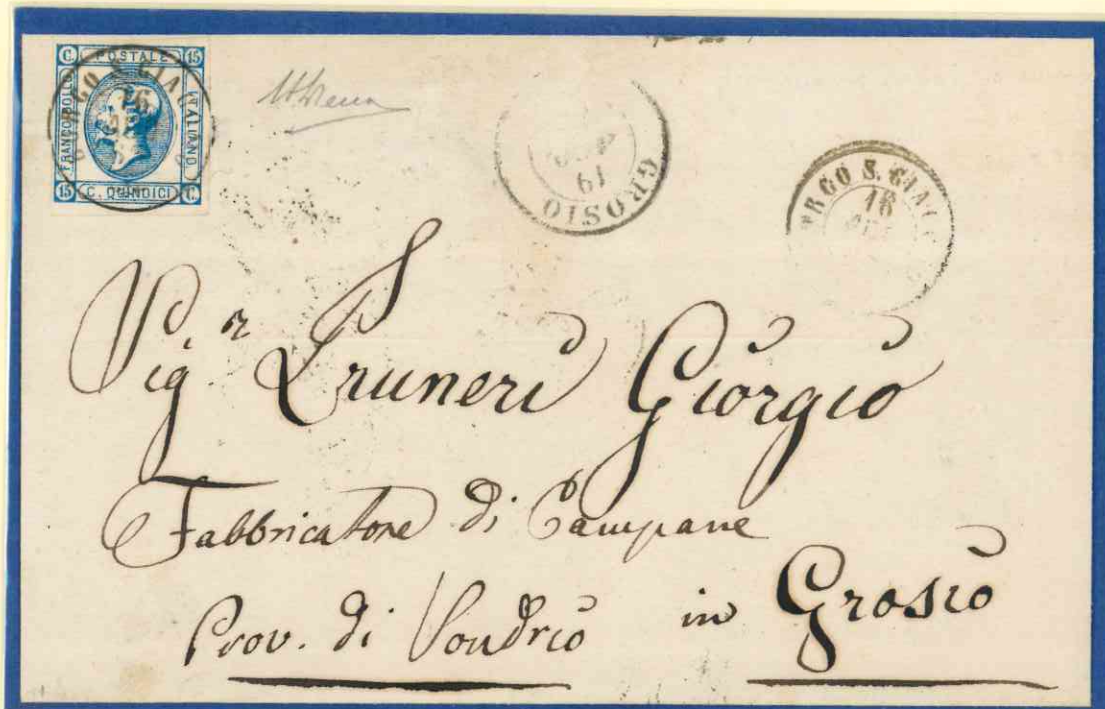 C. POSTALE 15
FRANCO BOLLO
ITALIANO
15 C. QUINDICI C.
GROSIO
19
S. GIAC
16
Sigr Pruneri Giorgio
Fabbricatore di Campane
Prov. di Sondrio in Grosio